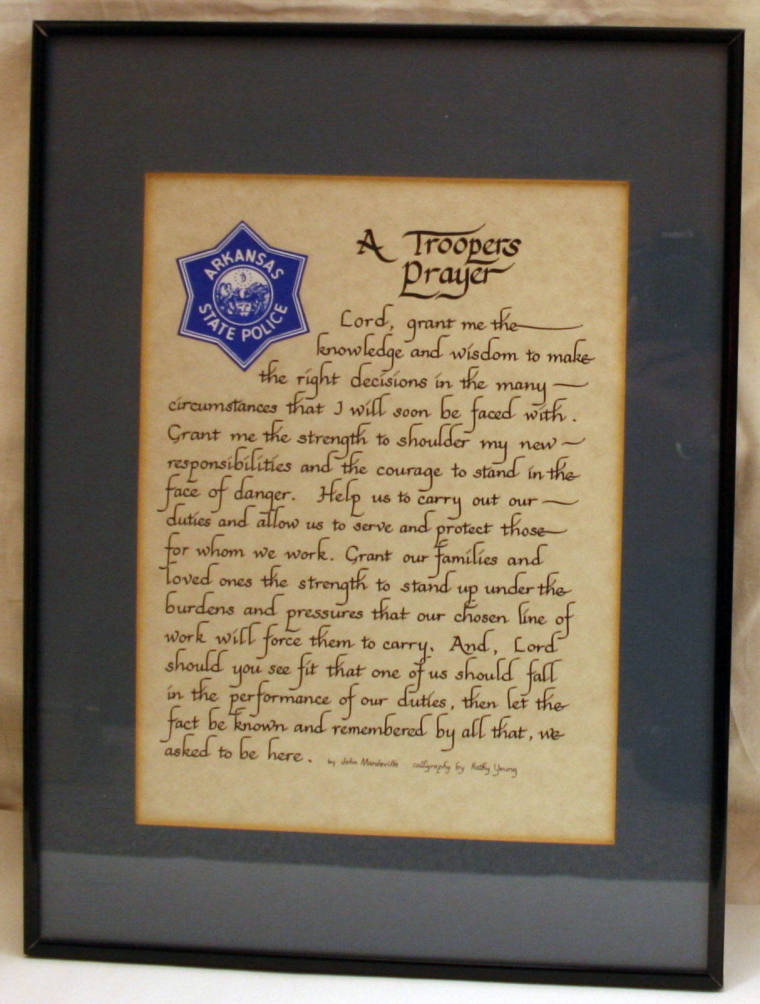 ARKANSAS
STATE POLICE
A Troopers
Prayer
Lord, grant me the
knowledge and wisdom to make
the right decisions in the many
circumstances that I will soon be faced with.
Grant me the strength to shoulder my new
responsibilities and the courage to stand in the
face of danger. Help us to carry out our
duties and allow us to serve and protect those
for whom we work. Grant our families and
loved ones the strength to stand up under the
burdens and pressures that our chosen line of
work will force them to carry. And, Lord
should you see fit that one of us should fall
in the performance of our duties, then let the
fact be known and remembered by all that, we
asked to be here. by John Mandeville calligraphy by Kathy Young